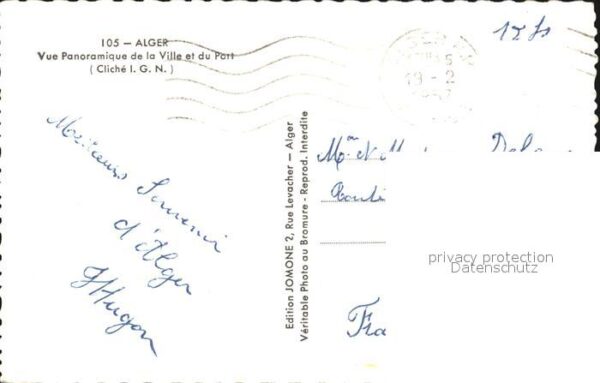 105 — ALGER
Vue Panoramique de la Ville et du Port
( Cliché I. G. N. )
19 - 2
15 fs
Meilleurs Souvenir
d'Alger
JHugon
Edition JOMONE 2, Rue Levacher — Alger
Véritable Photo au Bromure - Reprod. Interdite
Mme
Fra
privacy protection
Datenschutz